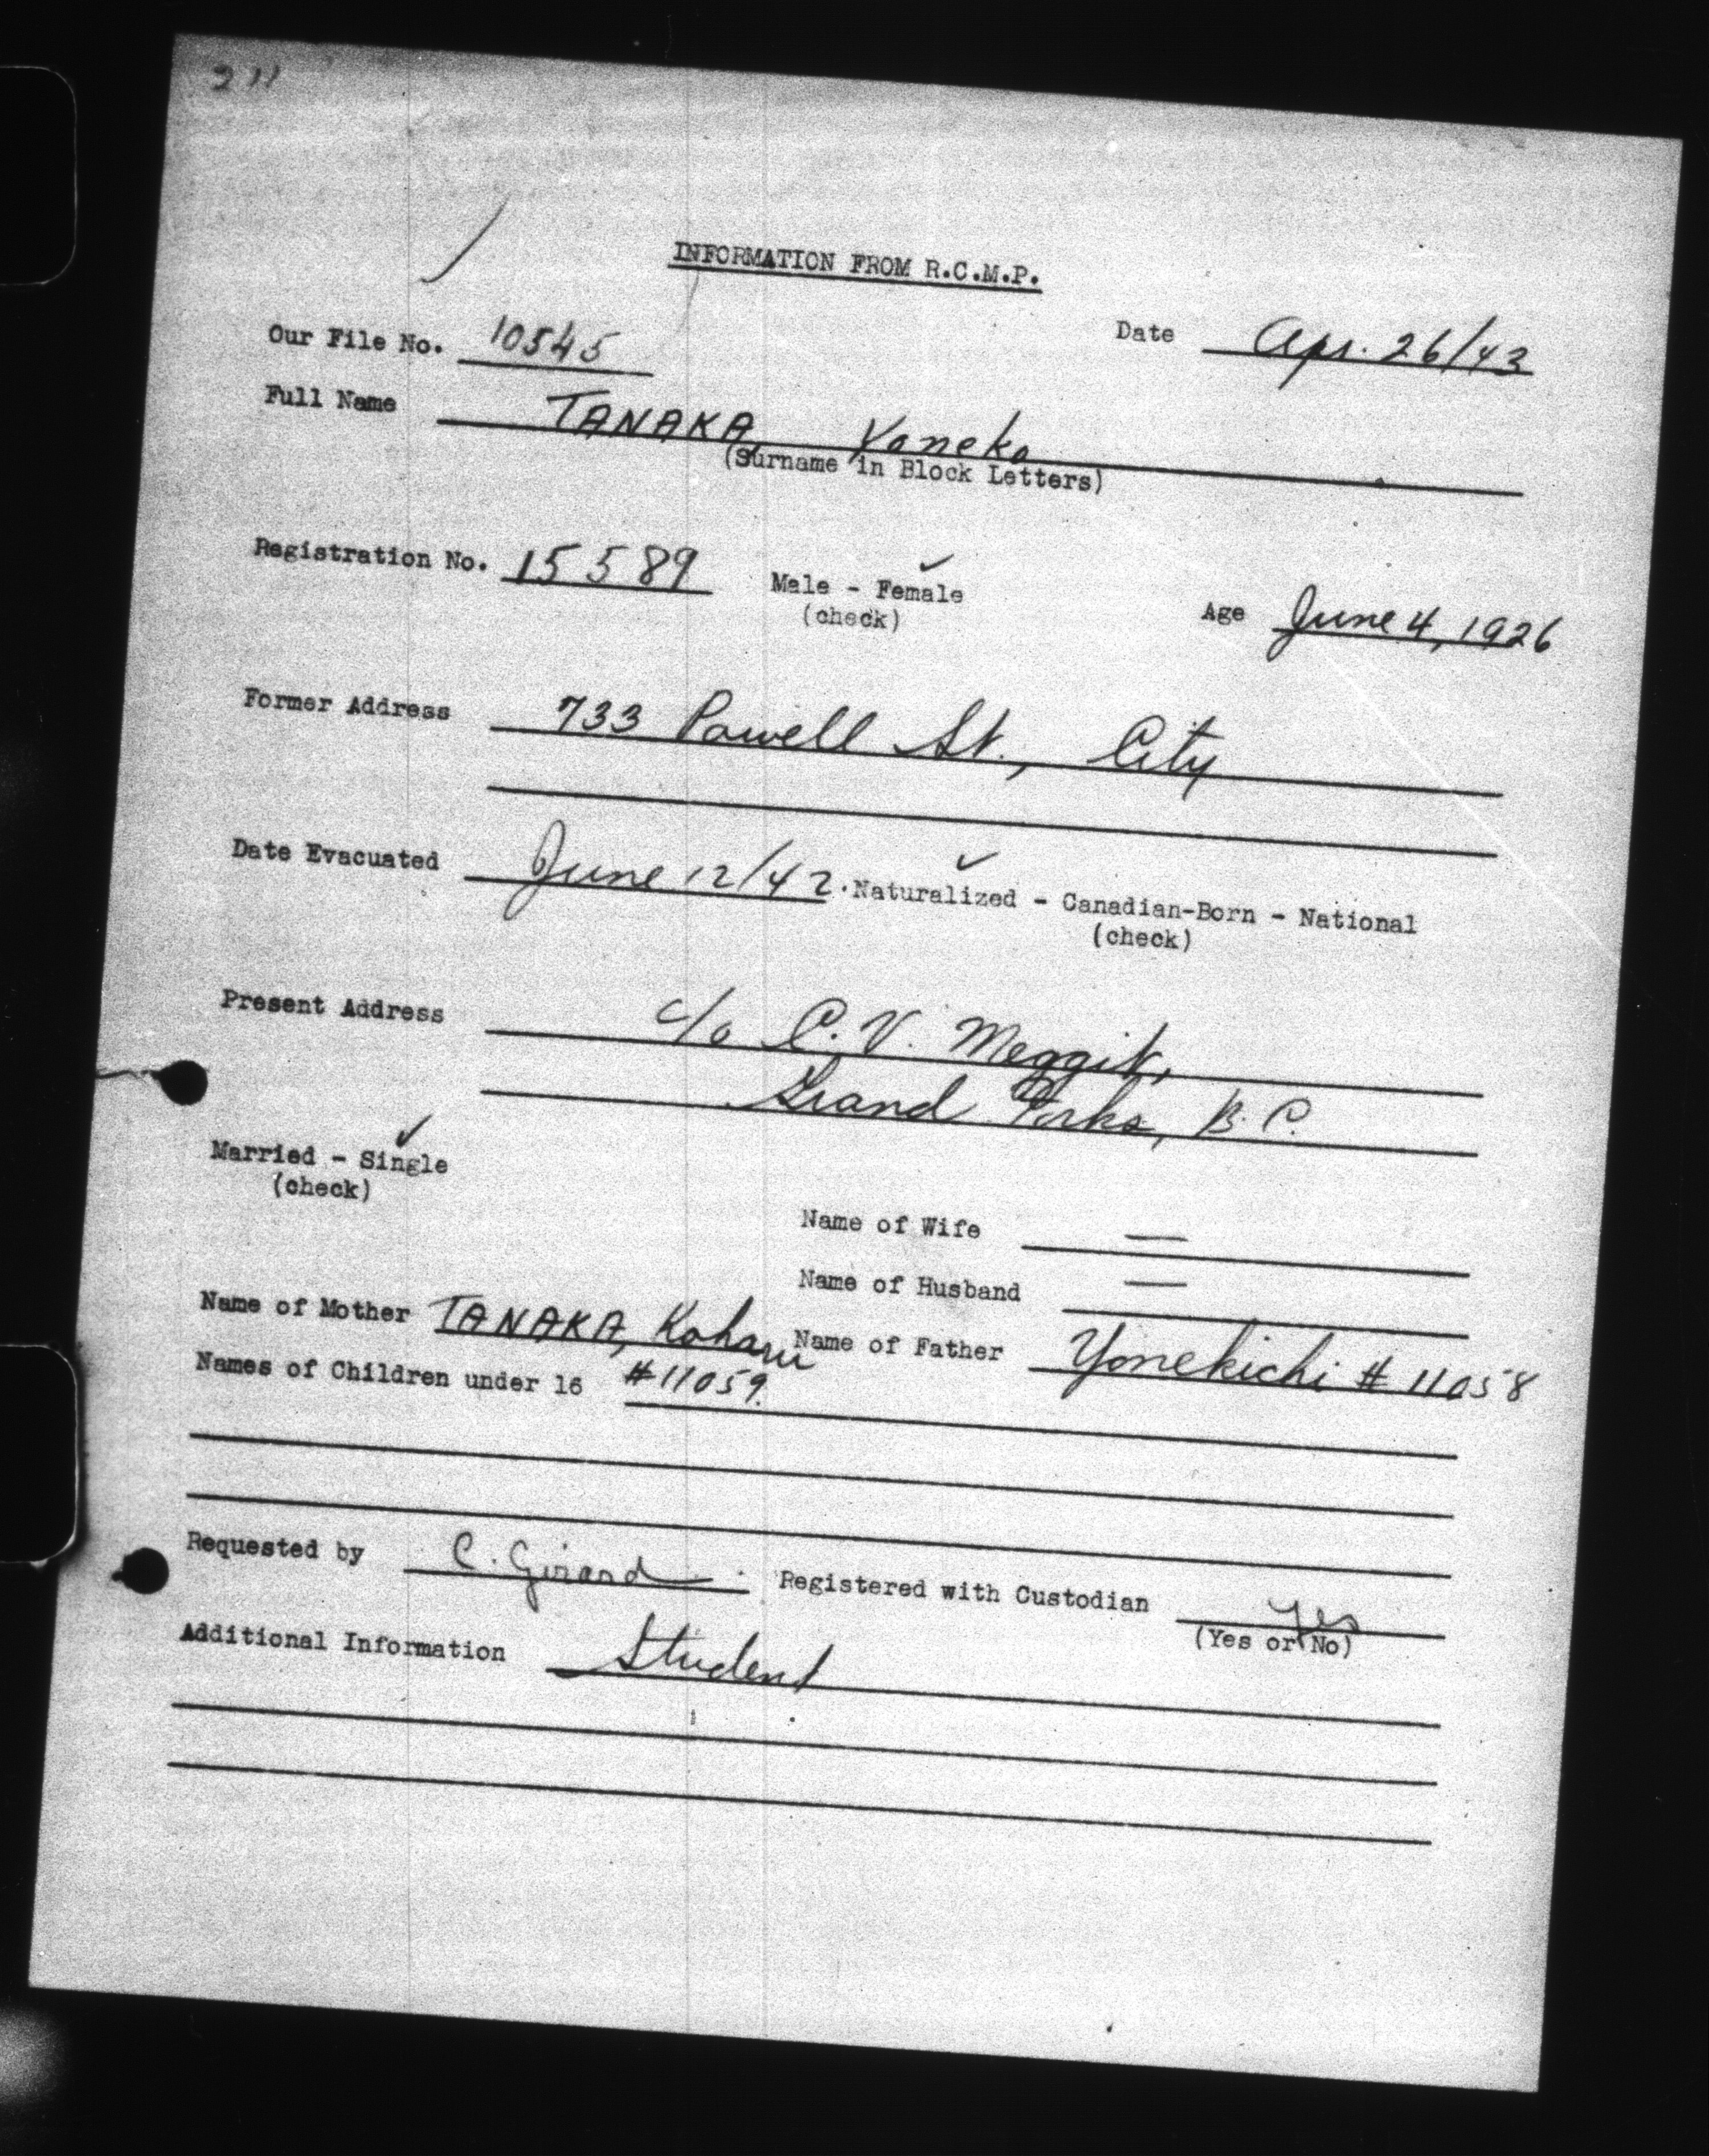 211
INFORMATION FROM R.C.M.P.
Our File No. 10545 Date Apr. 26/43
Full Name TANAKA, Kaneko
(Surname in Block Letters)
Registration No. 15589 Male - Female ✓ Age June 4, 1926
(check)
Former Address 733 Powell St., City
Date Evacuated June 12/42. Naturalized ✓ - Canadian-Born - National
(check)
Present Address c/o C. V. Meggit,
Grand Forks, B.C.
Married - Single ✓
(check)
Name of Wife —
Name of Husband —
Name of Mother TANAKA, Koharu Name of Father Yonekichi # 11058
Names of Children under 16 #11059.
Requested by C. Girard Registered with Custodian Yes
(Yes or No)
Additional Information Student